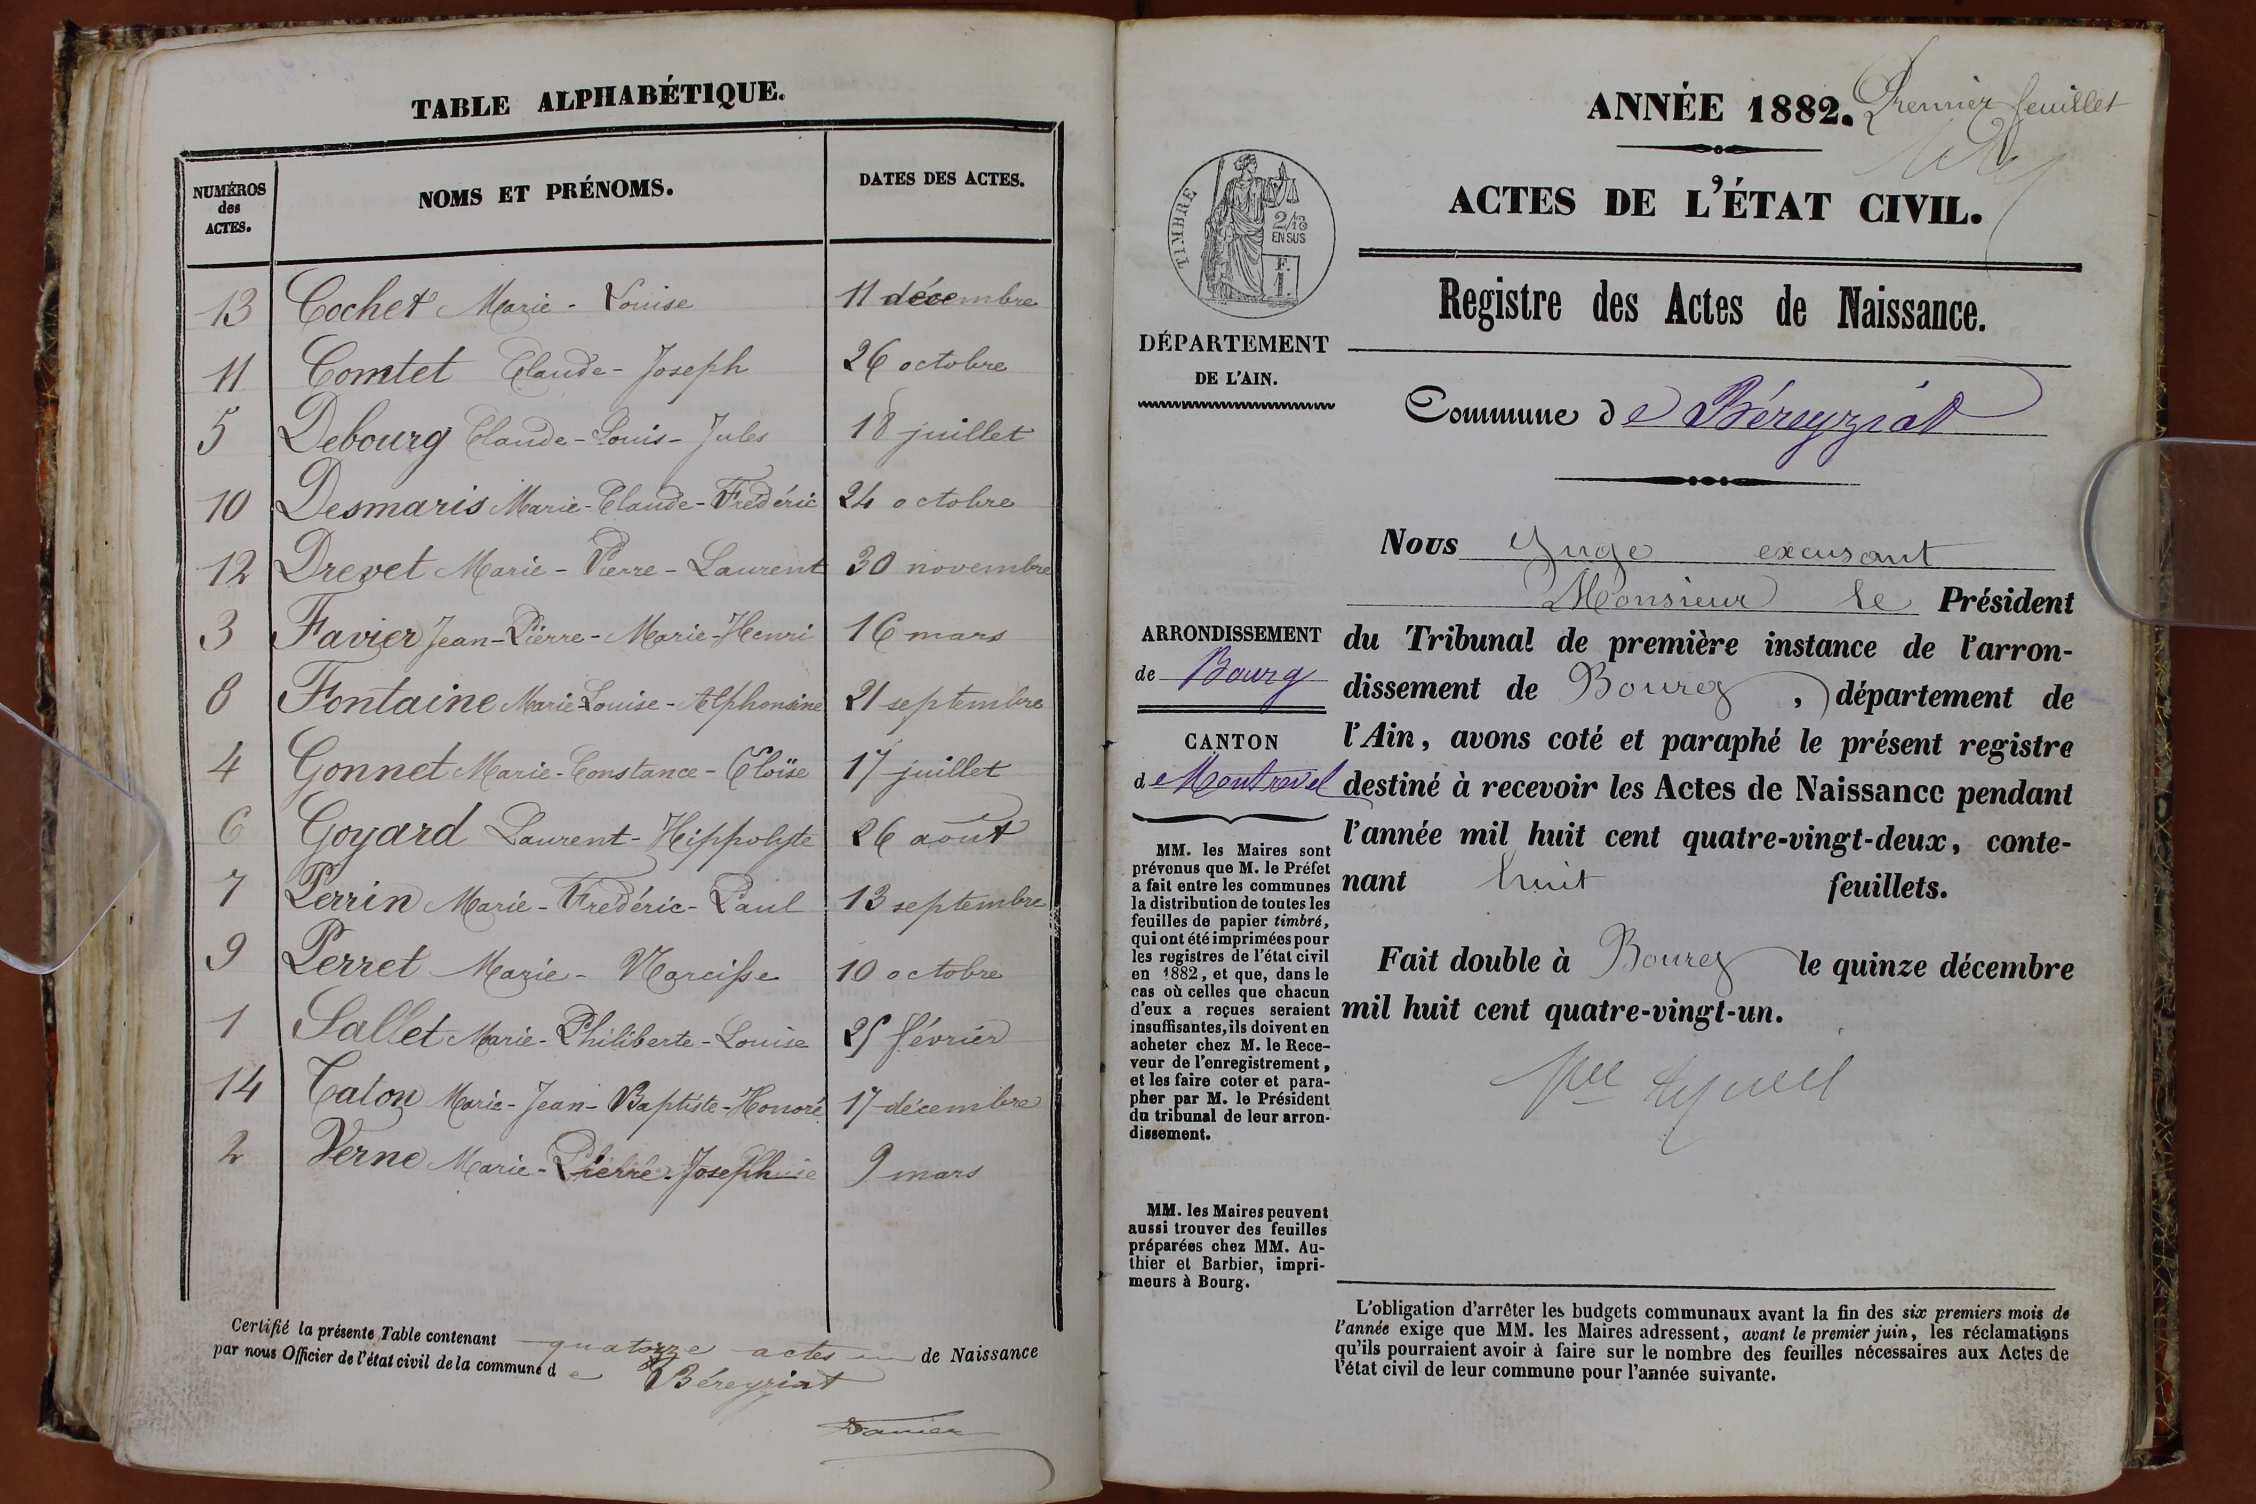 TABLE ALPHABÉTIQUE.
NUMÉROS des ACTES.
NOMS ET PRÉNOMS.
DATES DES ACTES.
13 Cochet Marie-Louise 11 décembre
11 Comtet Claude-Joseph 26 octobre
5 Debourg Claude-Louis-Jules 18 juillet
10 Desmaris Marie-Claude-Frédéric 24 octobre
12 Drevet Marie-Pierre-Laurent 30 novembre
3 Favier Jean-Pierre-Marie-Henri 16 mars
8 Fontaine Marie-Louise-Alphonsine 21 septembre
4 Gonnet Marie-Constance-Eloïse 17 juillet
6 Goyard Laurent-Hippolyte 26 août
7 Perrin Marie-Frédéric-Paul 13 septembre
9 Perret Marie-Narcisse 10 octobre
1 Sallet Marie-Philiberte-Louise 25 février
14 Caton Marie-Jean-Baptiste-Honoré 17 décembre
2 Verne Marie-Pierre-Joseph 9 mars
Certifié la présente Table contenant quatorze actes de Naissance
par nous Officier de l'état civil de la commune de Béreyziat
ANNÉE 1882.
Premier feuillet
ACTES DE L'ÉTAT CIVIL.
TIMBRE
2/10
EN SUS
F.
1.
Registre des Actes de Naissance.
DÉPARTEMENT
DE L'AIN.
Commune de Béreyziat
Nous Juge excusant
Monsieur le Président
du Tribunal de première instance de l'arron-
dissement de Bourg, département de
l'Ain, avons coté et paraphé le présent registre
destiné à recevoir les Actes de Naissance pendant
l'année mil huit cent quatre-vingt-deux, conte-
nant huit feuillets.
Fait double à Bourg le quinze décembre
mil huit cent quatre-vingt-un.
ARRONDISSEMENT
de Bourg
CANTON
de Montrevel
MM. les Maires sont
prévenus que M. le Préfet
a fait entre les communes
la distribution de toutes les
feuilles de papier timbré,
qui ont été imprimées pour
les registres de l'état civil
en 1882, et que, dans le
cas où celles que chacun
d'eux a reçues seraient
insuffisantes, ils doivent en
acheter chez M. le Rece-
veur de l'enregistrement,
et les faire coter et para-
pher par M. le Président
du tribunal de leur arron-
dissement.
MM. les Maires peuvent
aussi trouver des feuilles
préparées chez MM. Au-
thier et Barbier, impri-
meurs à Bourg.
L'obligation d'arrêter les budgets communaux avant la fin des six premiers mois de
l'année exige que MM. les Maires adressent, avant le premier juin, les réclamations
qu'ils pourraient avoir à faire sur le nombre des feuilles nécessaires aux Actes de
l'état civil de leur commune pour l'année suivante.